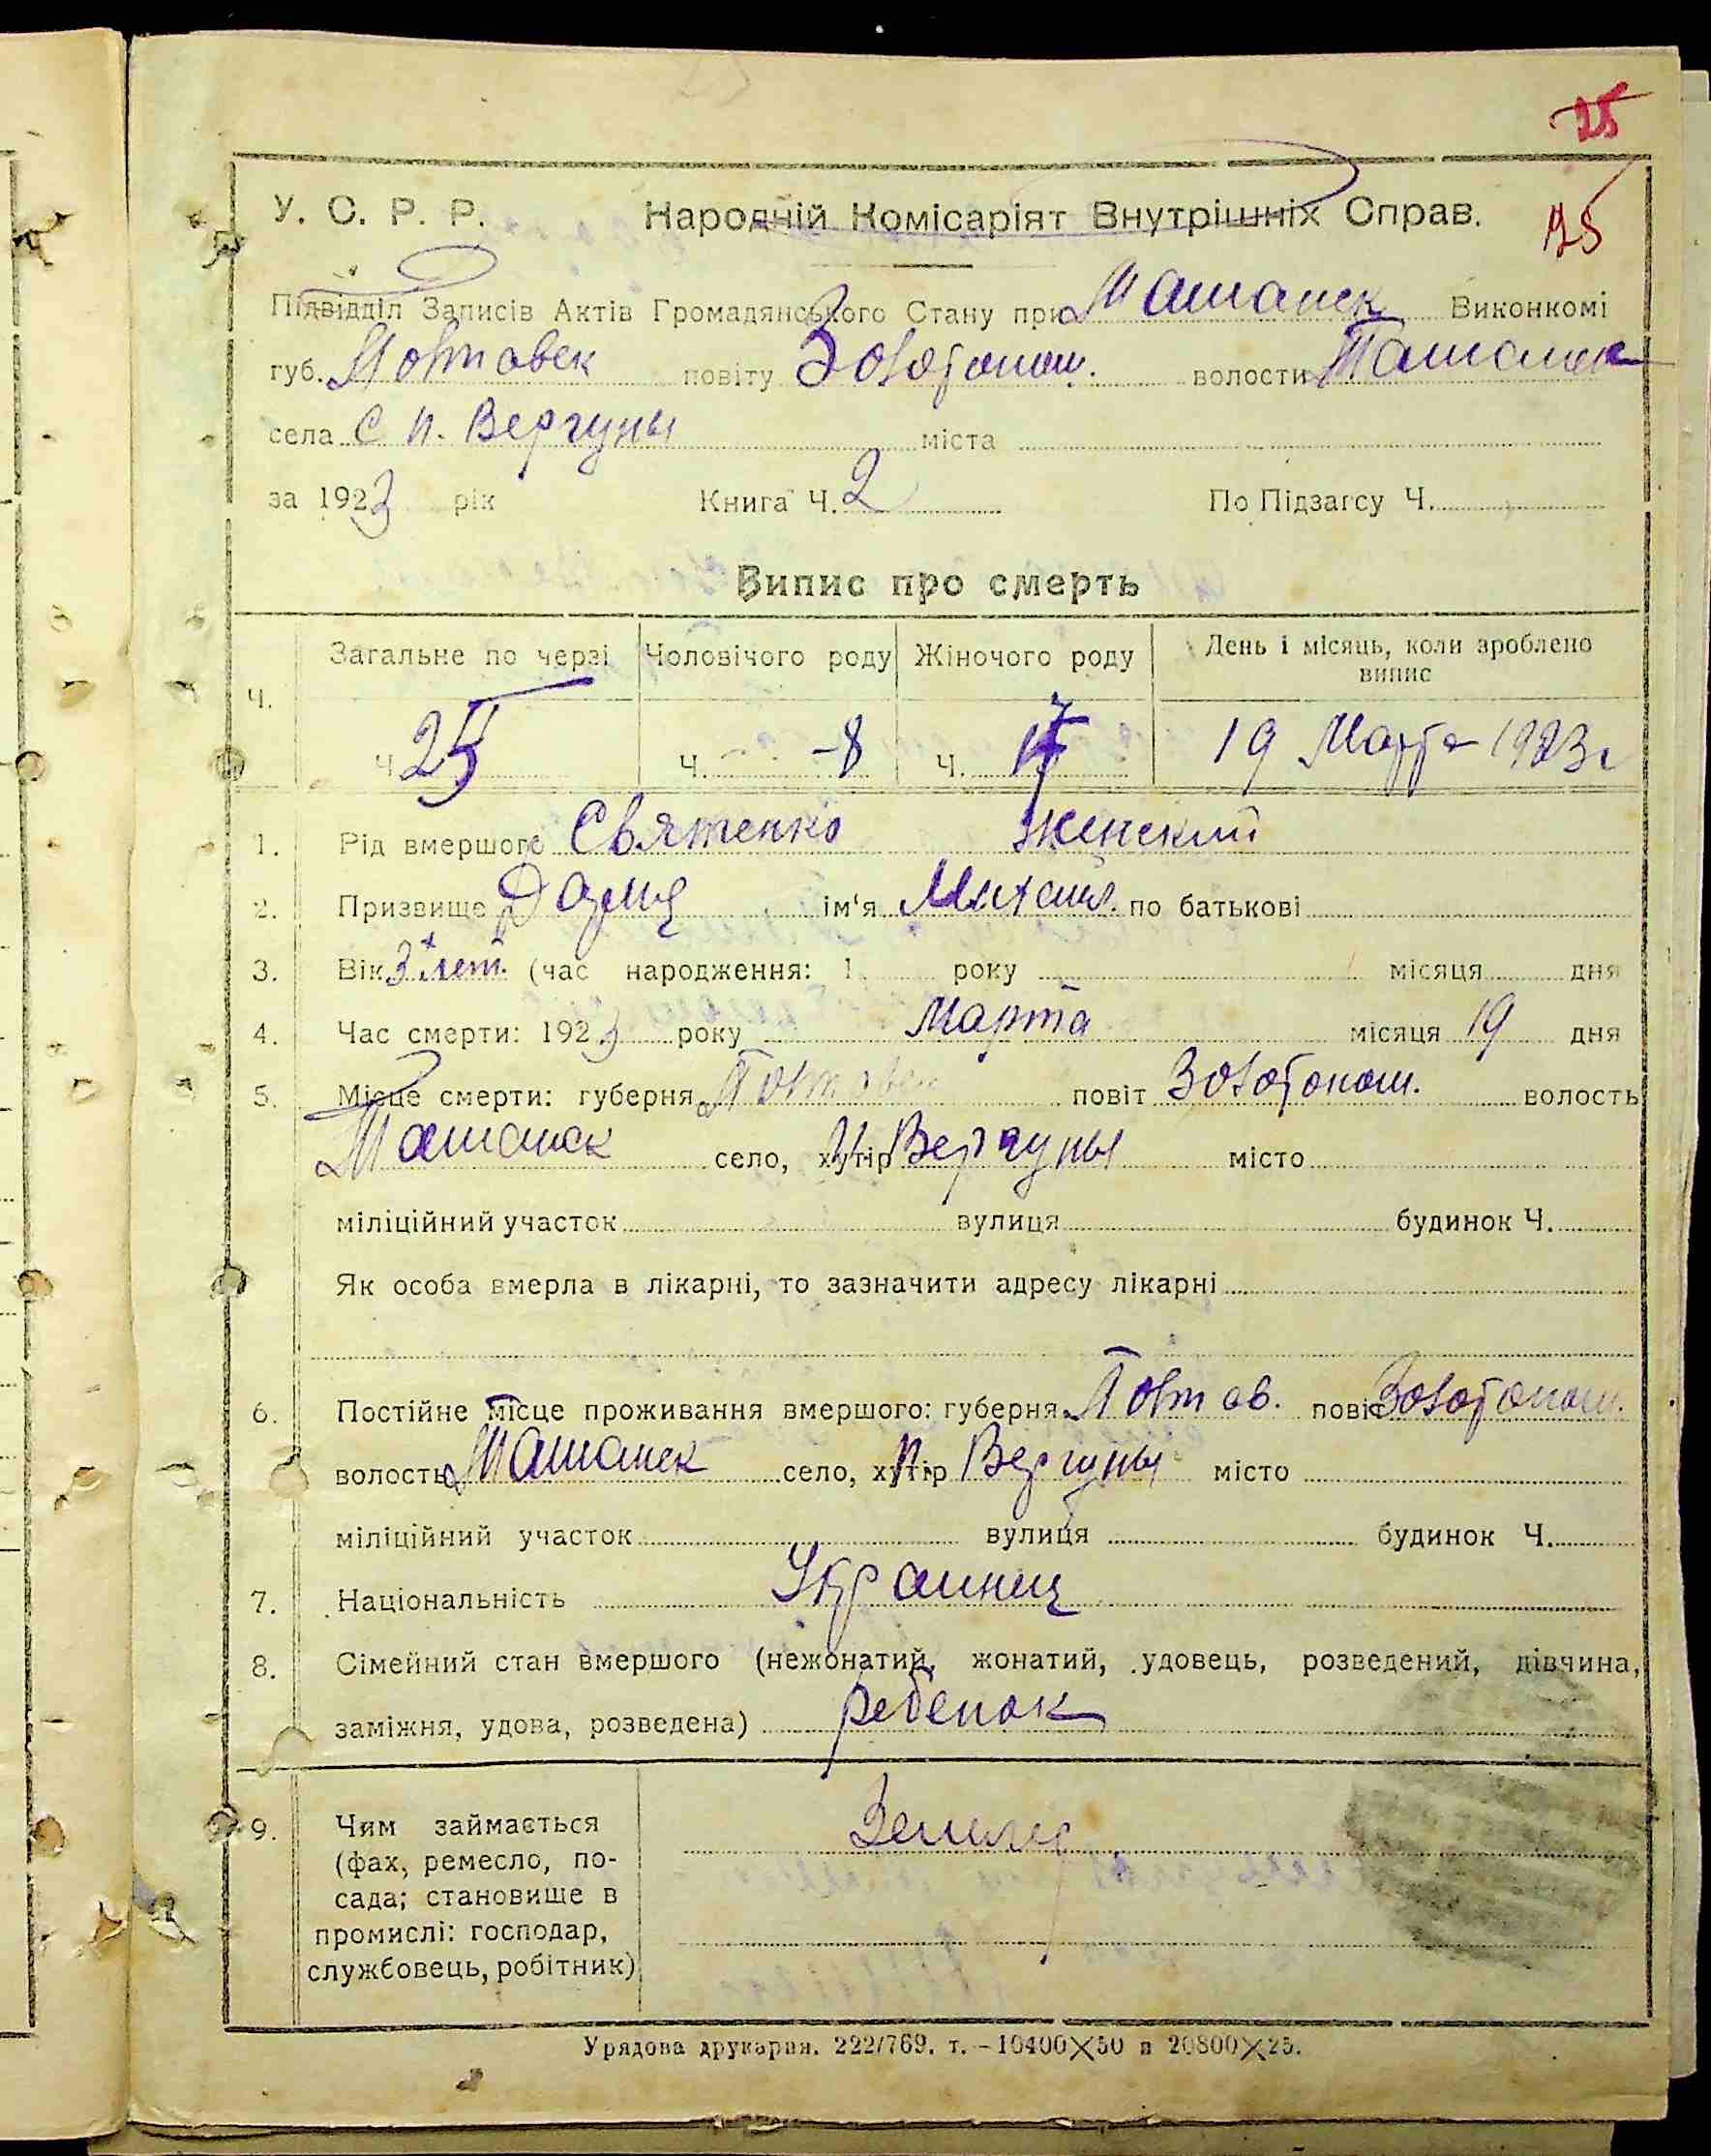 25
У. С. Р. Р. Народній Комісаріят Внутрішніх Справ. 25
Підвідділ Записів Актів Громадянського Стану при Ташанск Виконкомі
губ. Полтавск повіту Золотонош. волости Ташанск
села С п. Вергуны міста
за 1923 рік Книга Ч. 2 По Підзагсу Ч.
Випис про смерть
Ч. Загальне по черзі Чоловічого роду Жіночого роду День і місяць, коли зроблено
випис
Ч. 25 Ч. -8 Ч. 17 19 Марта 1923 г
1. Рід вмершого Святенко женский
2. Призвище ім'я Михаил. по батькові
3. Вік 3 лет. (час народження: 1 року місяця дня
4. Час смерти: 1923 року Марта місяця 19 дня
5. Місце смерти: губерня Полтавск повіт Золотонош. волость
Ташанск село, хутір Вергуны місто
міліційний участок вулиця будинок Ч.
Як особа вмерла в лікарні, то зазначити адресу лікарні
6. Постійне місце проживання вмершого: губерня Полтав. повіт Золотонош.
волость Ташанск село, хутір п. Вергуны місто
міліційний участок вулиця будинок Ч.
7. Національність Украинец
8. Сімейний стан вмершого (нежонатий, жонатий, удовець, розведений, дівчина,
заміжня, удова, розведена) ребенок
9. Чим займається
(фах, ремесло, по-
сада; становище в
промислі: господар,
службовець, робітник)
Урядова друкарня. 222/769. т. - 10400×50 п 20800×25.